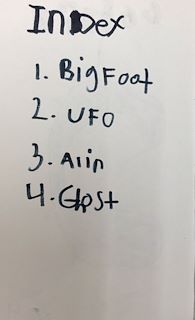 Index
1. Bigfoot
2. UFO
3. Aliin
4. Gost